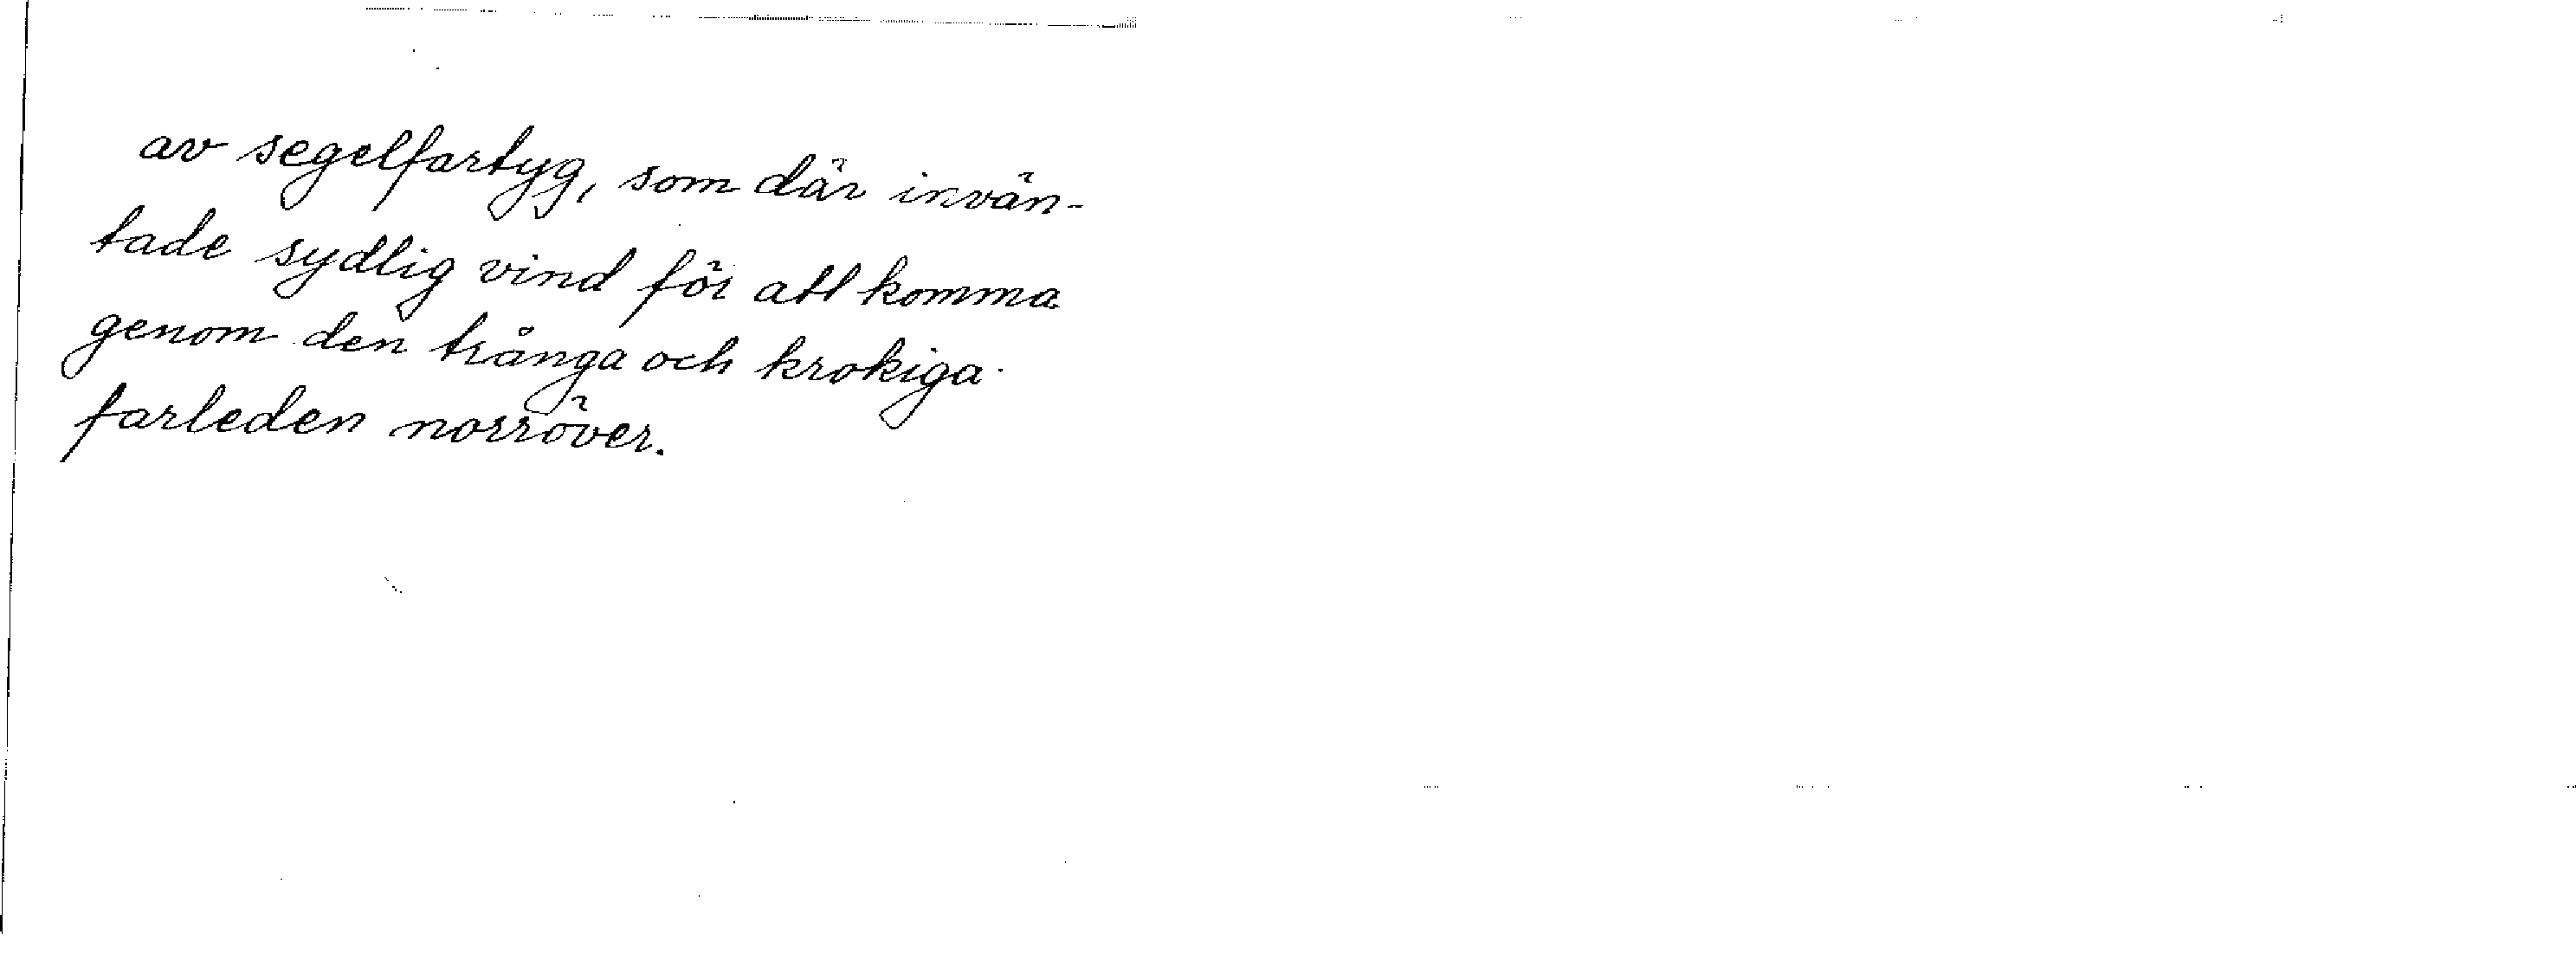 av segelfartyg, som där invän-
tade sydlig vind för att komma
genom den trånga och krokiga
farleden norröver.